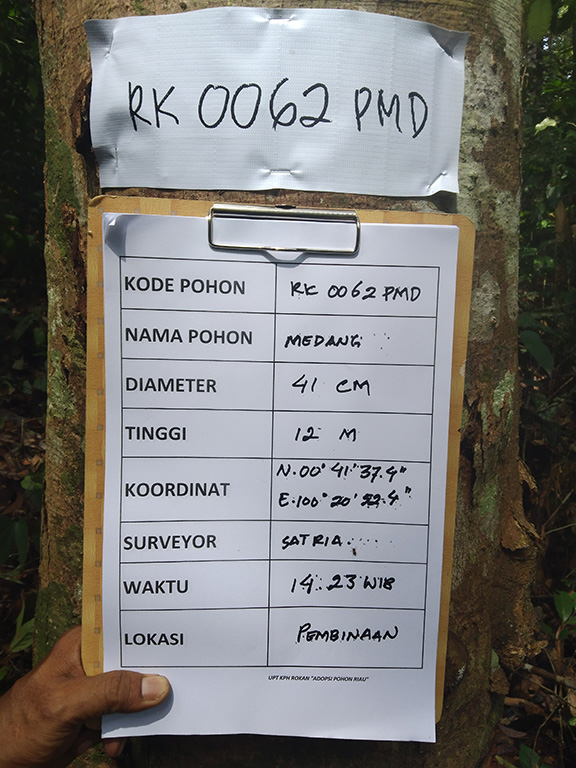 RK 0062 PMD
KODE POHON RK 0062 PMD
NAMA POHON MEDANG
DIAMETER 41 CM
TINGGI 12 M
KOORDINAT N.00° 41' 37.4"
E.100° 20' 22.4"
SURVEYOR SATRIA
WAKTU 14:23 WIB
LOKASI PEMBINAAN
UPT KPH ROKAN "ADOPSI POHON RIAU"